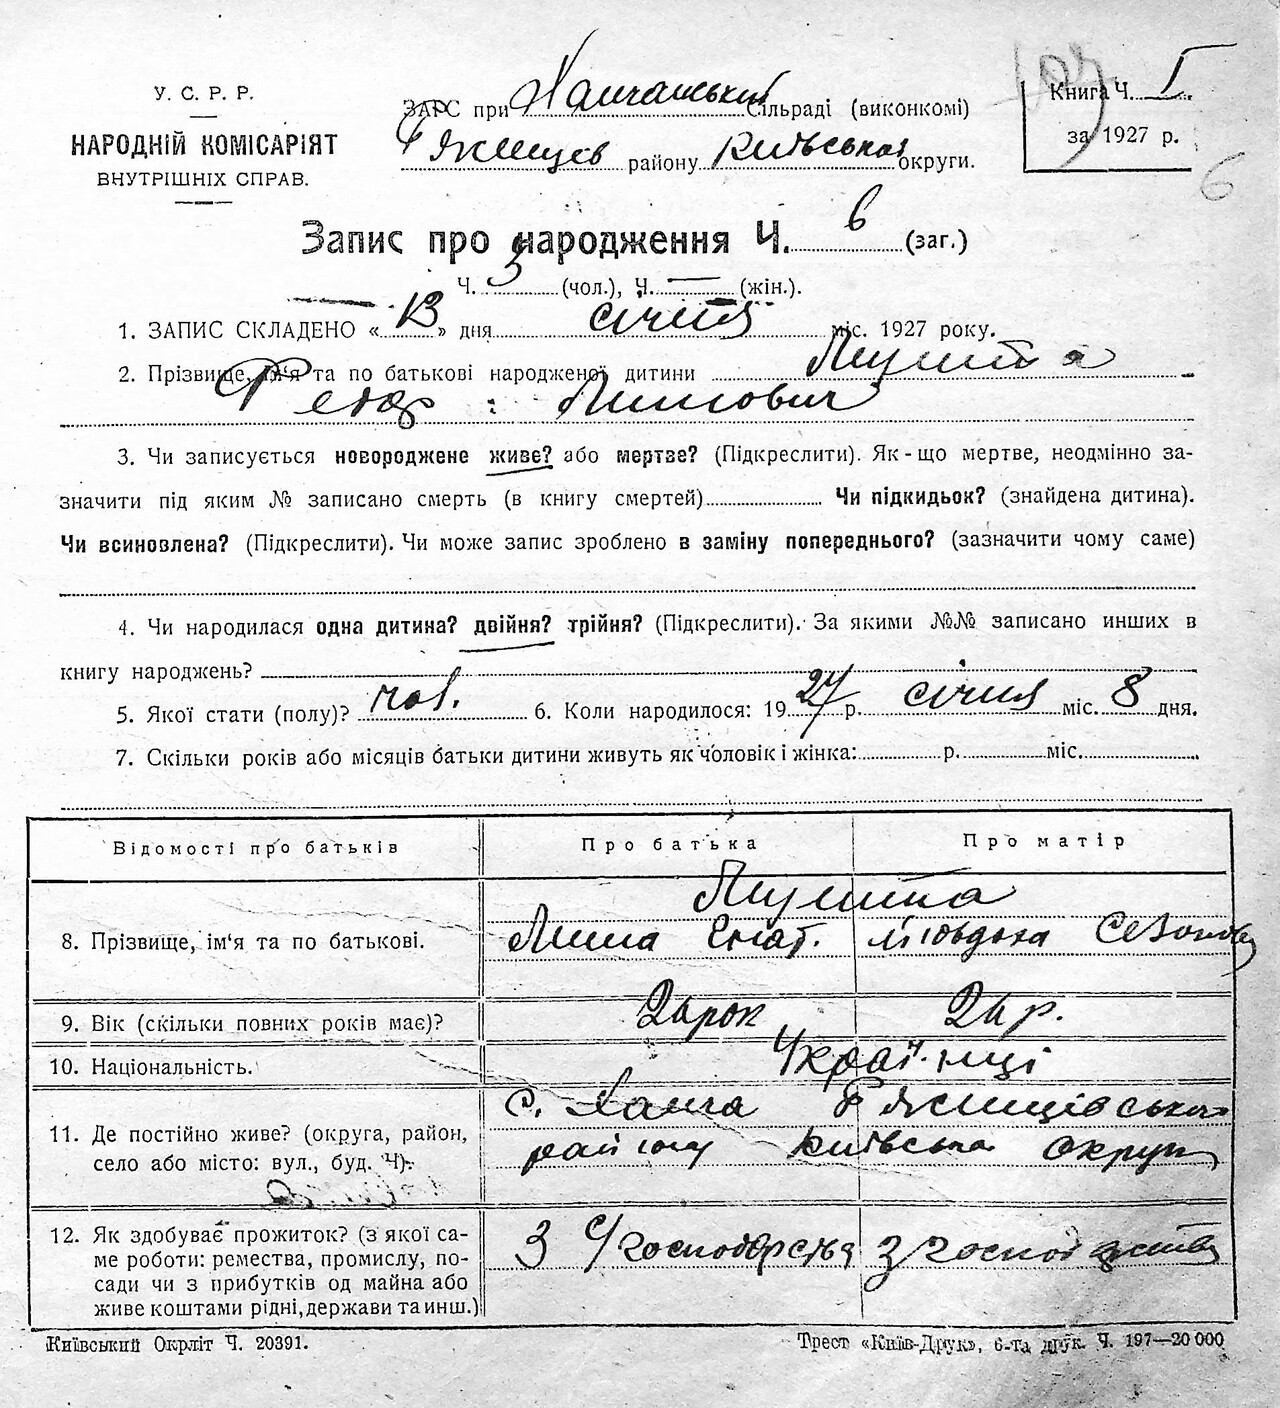 У. С. Р. Р.
НАРОДНІЙ КОМІСАРІЯТ
ВНУТРІШНІХ СПРАВ.
ЗАГС при сільраді (виконкомі)
району Київської округи.
Книга Ч. I
за 1927 р.
6
Запис про народження Ч. 6 (заг.)
Ч. 3 (чол.), Ч. — (жін.).
1. ЗАПИС СКЛАДЕНО « 13 » дня січня міс. 1927 року.
2. Прізвище, ім‘я та по батькові народженої дитини
Федор
3. Чи записується новороджене живе? або мертве? (Підкреслити). Як-що мертве, неодмінно за-
значити під яким № записано смерть (в книгу смертей) Чи підкидьок? (знайдена дитина).
Чи всиновлена? (Підкреслити). Чи може запис зроблено в заміну попереднього? (зазначити чому саме)
4. Чи народилася одна дитина? двійня? трійня? (Підкреслити). За якими №№ записано инших в
книгу народжень?
5. Якої стати (полу)? чол. 6. Коли народилося: 1927 р. січня міс. 8 дня.
7. Скільки років або місяців батьки дитини живуть як чоловік і жінка: р. міс.
Відомості про батьків Про батька Про матір
8. Прізвище, ім‘я та по батькові.
9. Вік (скільки повних років має)? рок р.
10. Національність. Українці
11. Де постійно живе? (округа, район,
село або місто: вул., буд. Ч).
с.
району Київська округи
12. Як здобуває прожиток? (з якої са-
ме роботи: ремества, промислу, по-
сади чи з прибутків од майна або
живе коштами рідні, держави та инш.)
З с/господорства З господарства
Київський Окрліт Ч. 20391.
Трест «Київ-Друк», 6-та друк. Ч. 197—20 000